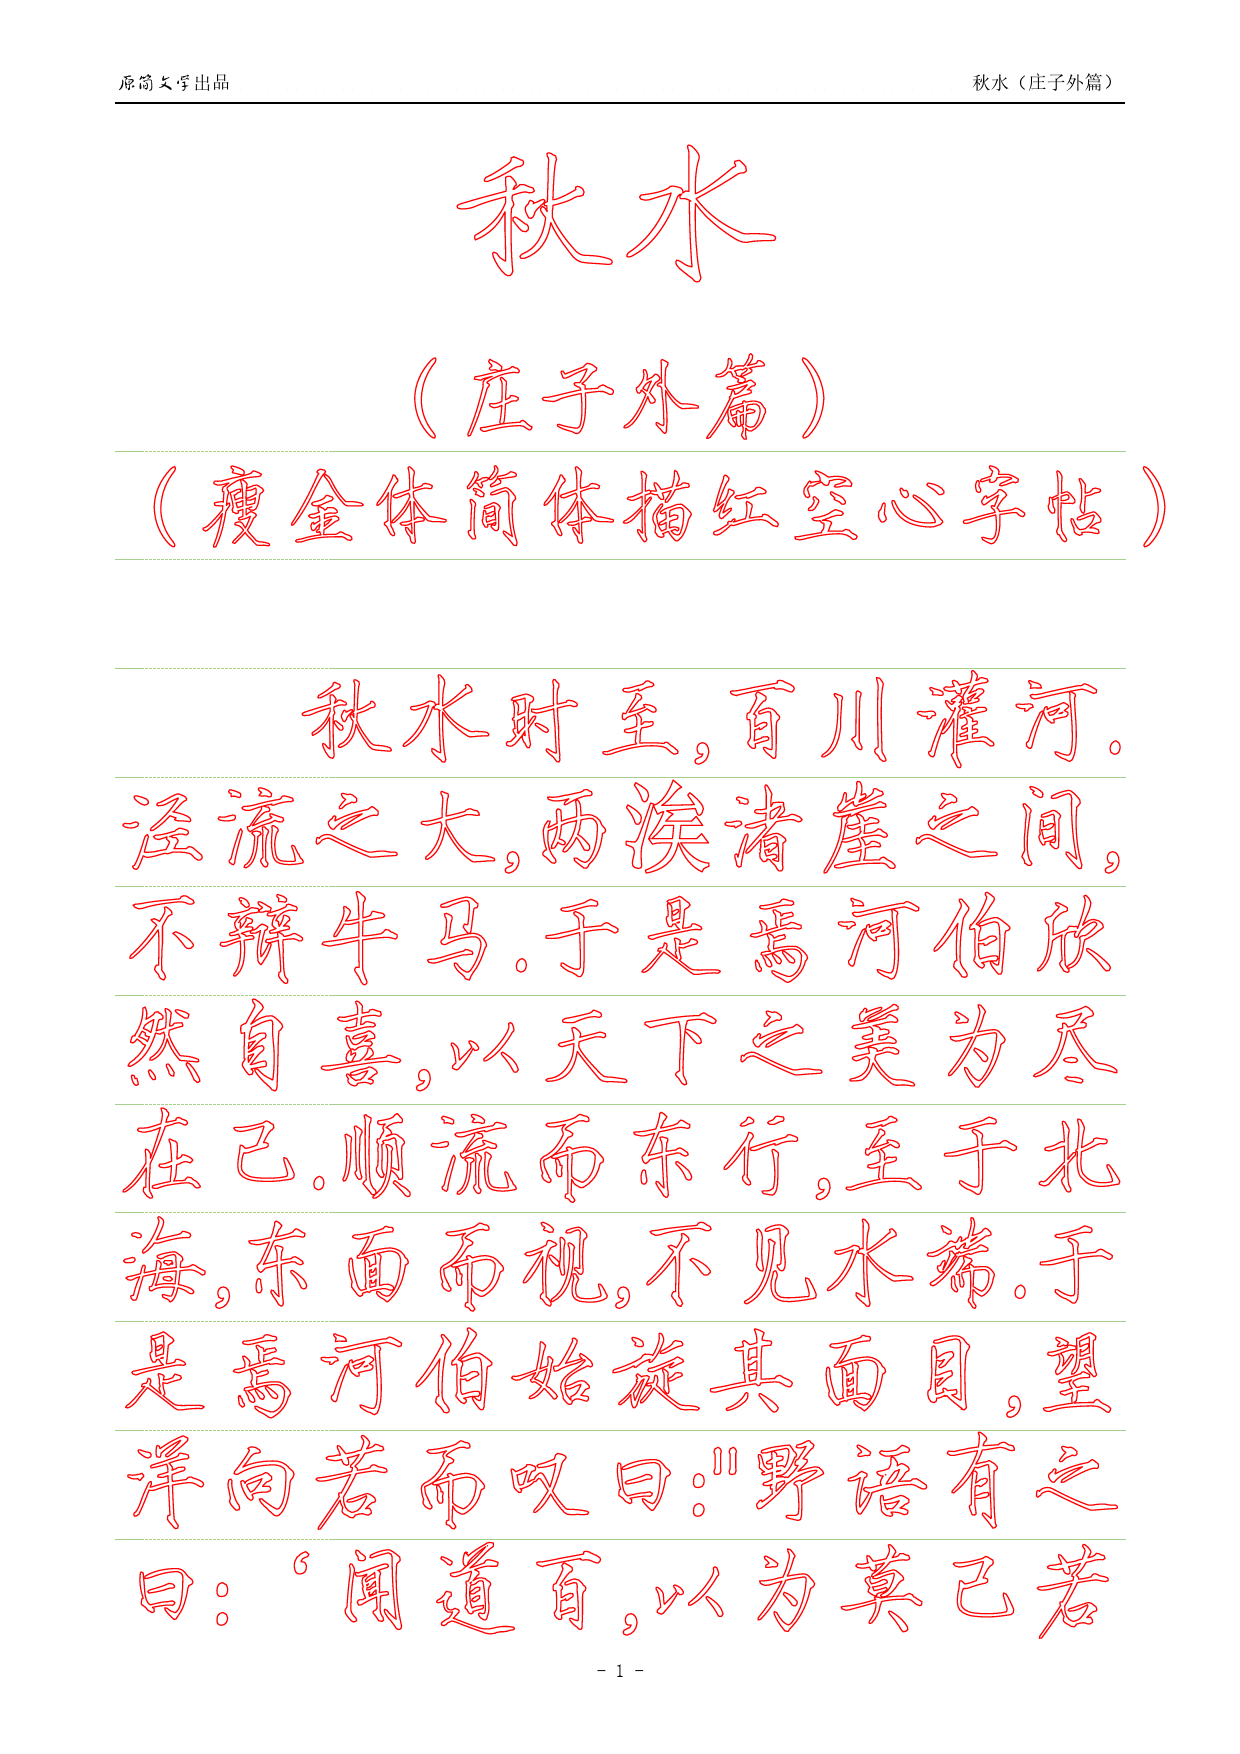 原简文学出品 秋水（庄子外篇）
秋水
（庄子外篇）
（瘦金体简体描红空心字帖）
秋水时至,百川灌河.
泾流之大,两涘渚崖之间,
不辩牛马.于是焉河伯欣
然自喜,以天下之美为尽
在己.顺流而东行,至于北
海,东面而视,不见水端.于
是焉河伯始旋其面目,望
洋向若而叹曰:"野语有之
曰：‘闻道百,以为莫己若
- 1 -